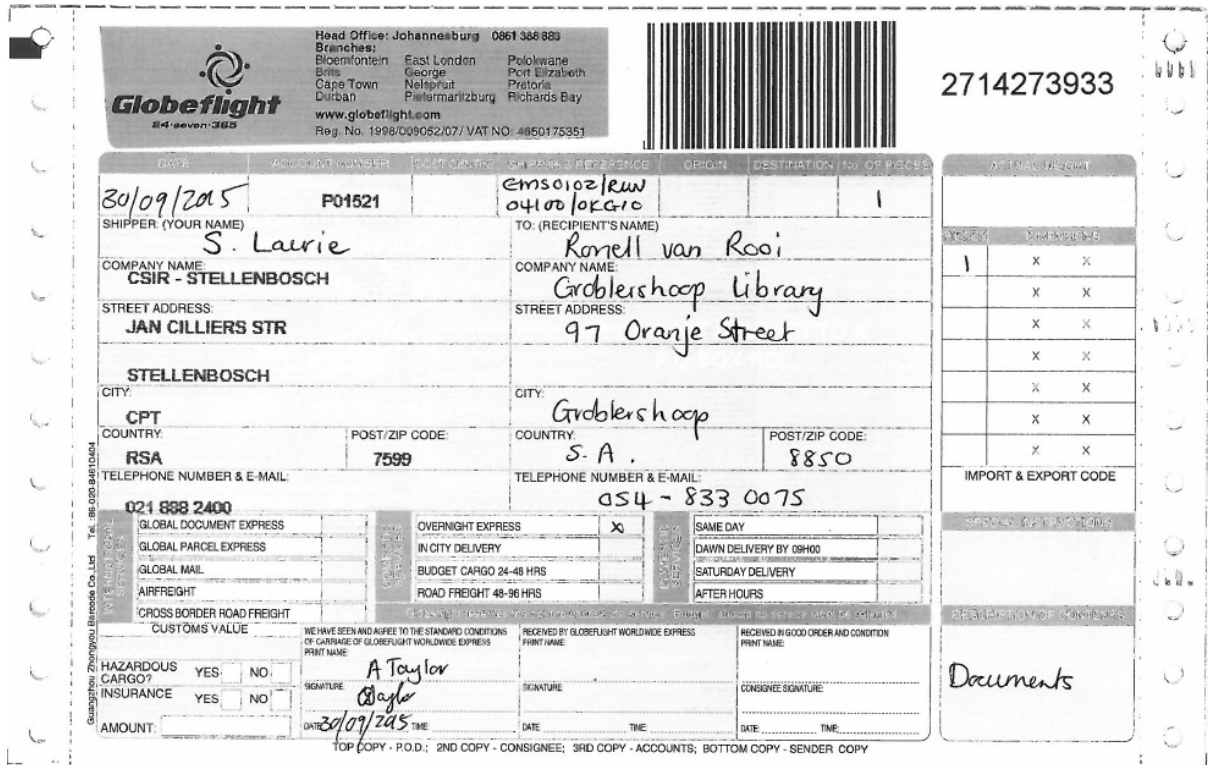 Globeflight
24-seven-365
Head Office: Johannesburg 0861 388 883
Branches:
Bloemfontein East London Polokwane
Brits George Port Elizabeth
Cape Town Nelspruit Pretoria
Durban Pietermaritzburg Richards Bay
www.globeflight.com
Reg. No. 1998/009052/07/ VAT NO: 4650175351
2714273933
DATE ACCOUNT NUMBER COST CENTRE SHIPPER'S REFERENCE ORIGIN DESTINATION No. OF PIECES
30/09/2015 P01521 EMS0102/RUW 1
04100/OKG10
SHIPPER: (YOUR NAME)
S. Laurie
COMPANY NAME:
CSIR - STELLENBOSCH
STREET ADDRESS:
JAN CILLIERS STR
STELLENBOSCH
CITY:
CPT
COUNTRY: POST/ZIP CODE:
RSA 7599
TELEPHONE NUMBER & E-MAIL:
021 888 2400
TO: (RECIPIENT'S NAME)
Ronell van Rooi
COMPANY NAME:
Groblershoop Library
STREET ADDRESS:
97 Oranje Street
CITY:
Groblershoop
COUNTRY: POST/ZIP CODE:
S.A. 8850
TELEPHONE NUMBER & E-MAIL:
054 - 833 0075
ACTUAL WEIGHT
PIECES DIMENSIONS
1 X X
X X
X X
X X
X X
X X
X X
IMPORT & EXPORT CODE
SPECIAL INSTRUCTIONS
DESCRIPTION OF CONTENTS
Documents
GLOBAL DOCUMENT EXPRESS
GLOBAL PARCEL EXPRESS
GLOBAL MAIL
AIRFREIGHT
CROSS BORDER ROAD FREIGHT
OVERNIGHT EXPRESS X
IN CITY DELIVERY
BUDGET CARGO 24-48 HRS
ROAD FREIGHT 48-96 HRS
SAME DAY
DAWN DELIVERY BY 09H00
SATURDAY DELIVERY
AFTER HOURS
CUSTOMS VALUE
HAZARDOUS CARGO? YES NO
INSURANCE YES NO
AMOUNT:
WE HAVE SEEN AND AGREE TO THE STANDARD CONDITIONS
OF CARRIAGE OF GLOBEFLIGHT WORLDWIDE EXPRESS
PRINT NAME:
A Taylor
SIGNATURE
DATE 30/09/2015 TIME:
RECEIVED BY GLOBEFLIGHT WORLDWIDE EXPRESS
PRINT NAME:
SIGNATURE
DATE TIME:
RECEIVED IN GOOD ORDER AND CONDITION
PRINT NAME:
CONSIGNEE SIGNATURE:
DATE: TIME:
TOP COPY - P.O.D.; 2ND COPY - CONSIGNEE; 3RD COPY - ACCOUNTS; BOTTOM COPY - SENDER COPY
Guangzhou Zhongyou Barcode Co.,Ltd Tel.: 86-020-84610404